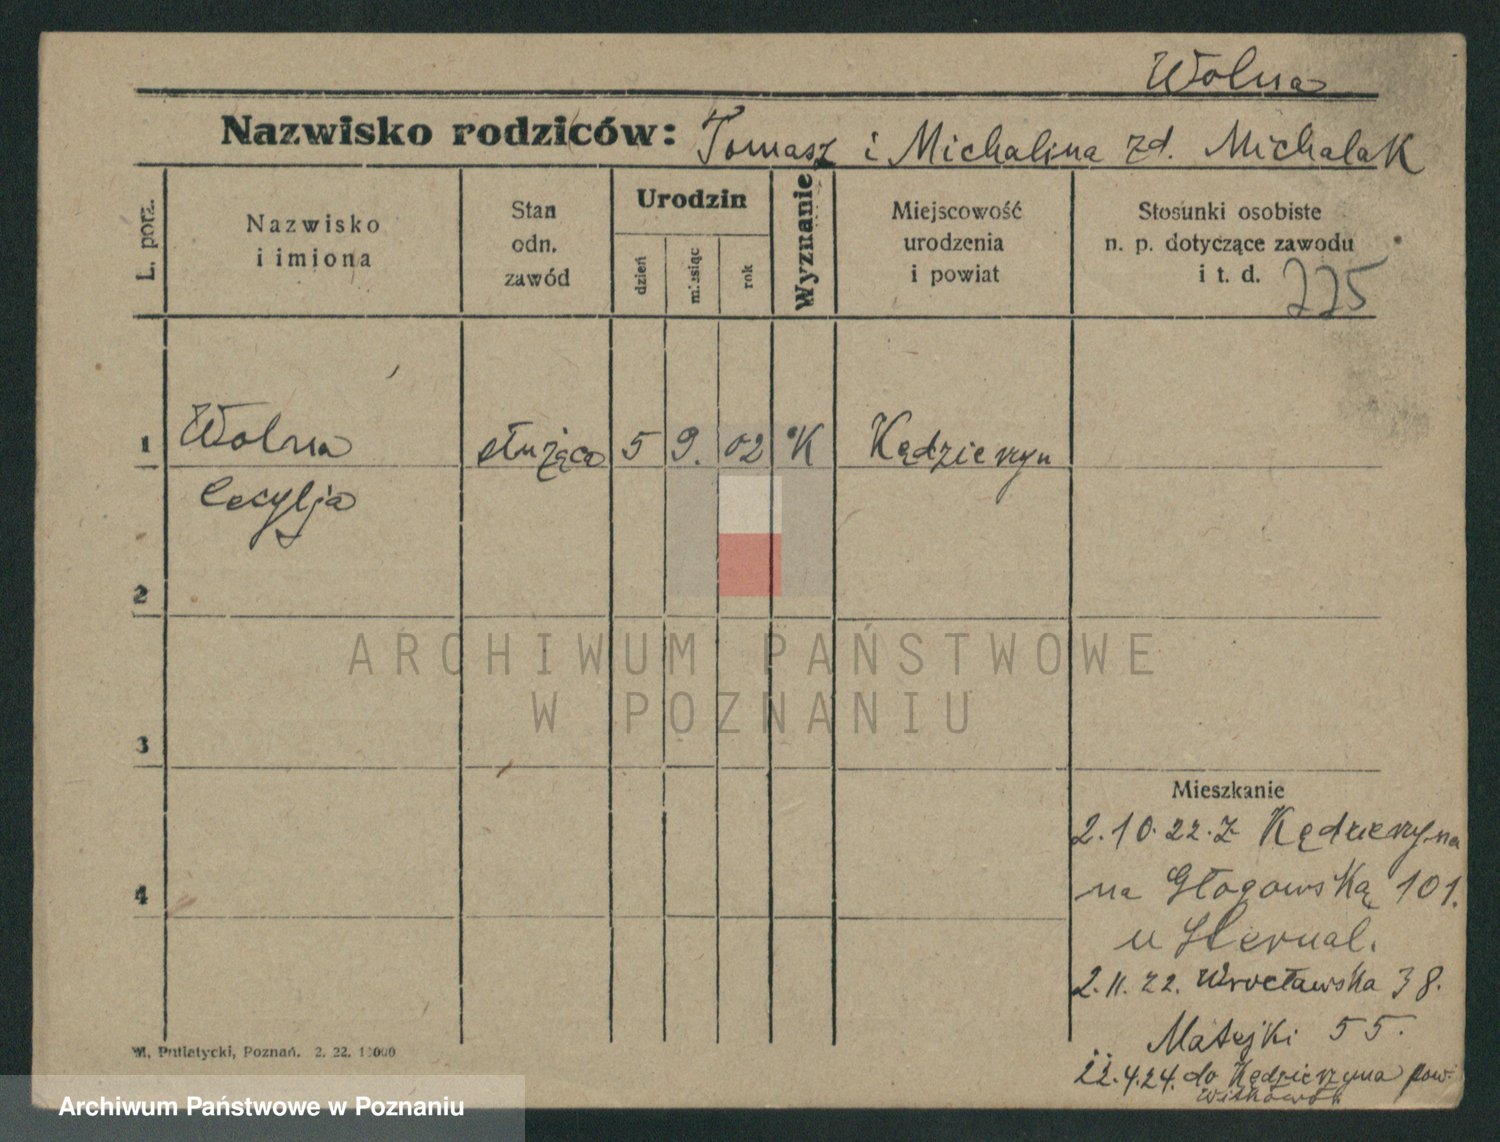 Wolna
Nazwisko rodziców: Tomasz i Michalina zd. Michalak
L. porz.
Nazwisko
i imiona
Stan
odn.
zawód
Urodzin
dzień
miesiąc
rok
Wyznanie
Miejscowość
urodzenia
i powiat
Stosunki osobiste
n. p. dotyczące zawodu
i t. d.
225
1 Wolna służąca 5 9. 02 K Kędzierzyn
Cecylja
2
3
4
Mieszkanie
2.10.22. z Kędzierzyna
na Głogowską 101.
u
2.11.22. Wrocławska 38.
Matejki 55.
22.4.24. do Kędzierzyna pow.
Witkowo
W. Putiatycki, Poznań. 2. 22. 10000
ARCHIWUM PAŃSTWOWE
W POZNANIU
Archiwum Państwowe w Poznaniu